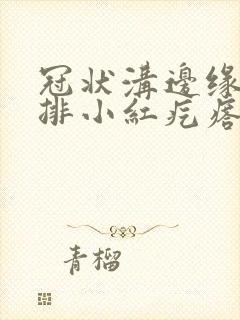 冠状溝邊缘
排小紅疙瘩
青榴